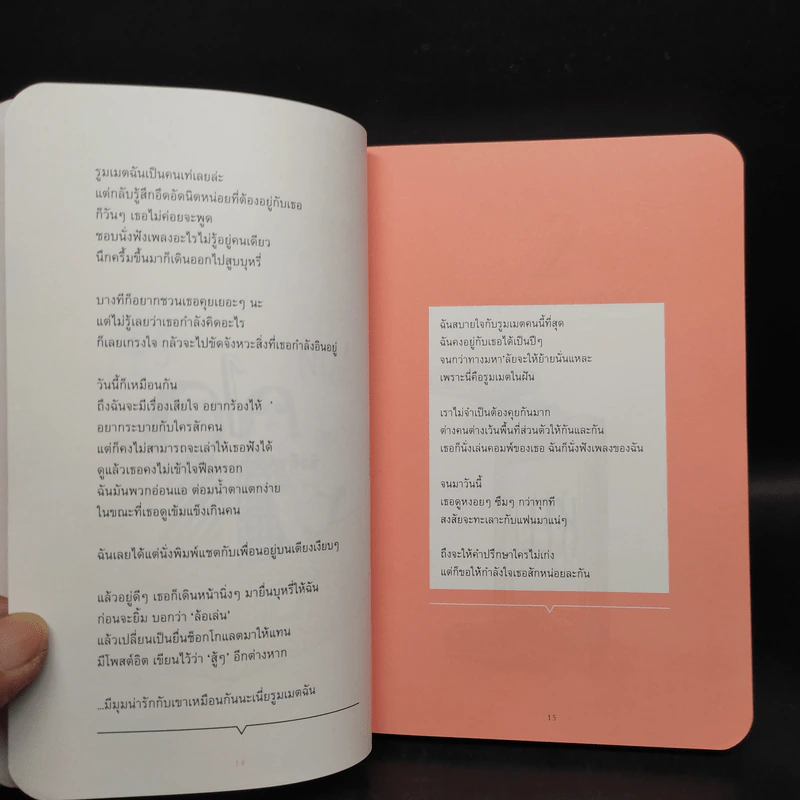 รูมเมตฉันเป็นคนเท่เลยล่ะ
แต่กลับรู้สึกอึดอัดนิดหน่อยที่ต้องอยู่กับเธอ
ก็วันๆ เธอไม่ค่อยจะพูด
ชอบนั่งฟังเพลงอะไรไม่รู้อยู่คนเดียว
นึกครึ้มขึ้นมาก็เดินออกไปสูบบุหรี่
บางทีก็อยากชวนเธอคุยเยอะๆ นะ
แต่ไม่รู้เลยว่าเธอกำลังคิดอะไร
ก็เลยเกรงใจ กลัวจะไปขัดจังหวะสิ่งที่เธอกำลังอินอยู่
วันนี้ก็เหมือนกัน
ถึงฉันจะมีเรื่องเสียใจ อยากร้องไห้
อยากระบายกับใครสักคน
แต่ก็คงไม่สามารถจะเล่าให้เธอฟังได้
ดูแล้วเธอคงไม่เข้าใจฟีลหรอก
ฉันมันพวกอ่อนแอ ต่อมน้ำตาแตกง่าย
ในขณะที่เธอดูเข้มแข็งเกินคน
ฉันเลยได้แต่นั่งพิมพ์แชตกับเพื่อนอยู่บนเตียงเงียบๆ
แล้วอยู่ดีๆ เธอก็เดินหน้านิ่งๆ มายื่นบุหรี่ให้ฉัน
ก่อนจะยิ้ม บอกว่า ‘ล้อเล่น’
แล้วเปลี่ยนเป็นยื่นช็อกโกแลตมาให้แทน
มีโพสต์อิต เขียนไว้ว่า ‘สู้ๆ’ อีกต่างหาก
...มีมุมน่ารักกับเขาเหมือนกันนะเนี่ยรูมเมตฉัน
14
ฉันสบายใจกับรูมเมตคนนี้ที่สุด
ฉันคงอยู่กับเธอได้เป็นปีๆ
จนกว่าทางมหา’ลัยจะให้ย้ายนั่นแหละ
เพราะนี่คือรูมเมตในฝัน
เราไม่จำเป็นต้องคุยกันมาก
ต่างคนต่างเว้นพื้นที่ส่วนตัวให้กันและกัน
เธอก็นั่งเล่นคอมพ์ของเธอ ฉันก็นั่งฟังเพลงของฉัน
จนมาวันนี้
เธอดูหงอยๆ ซึมๆ กว่าทุกที
สงสัยจะทะเลาะกับแฟนมาแน่ๆ
ถึงจะให้คำปรึกษาใครไม่เก่ง
แต่ก็ขอให้กำลังใจเธอสักหน่อยละกัน
15